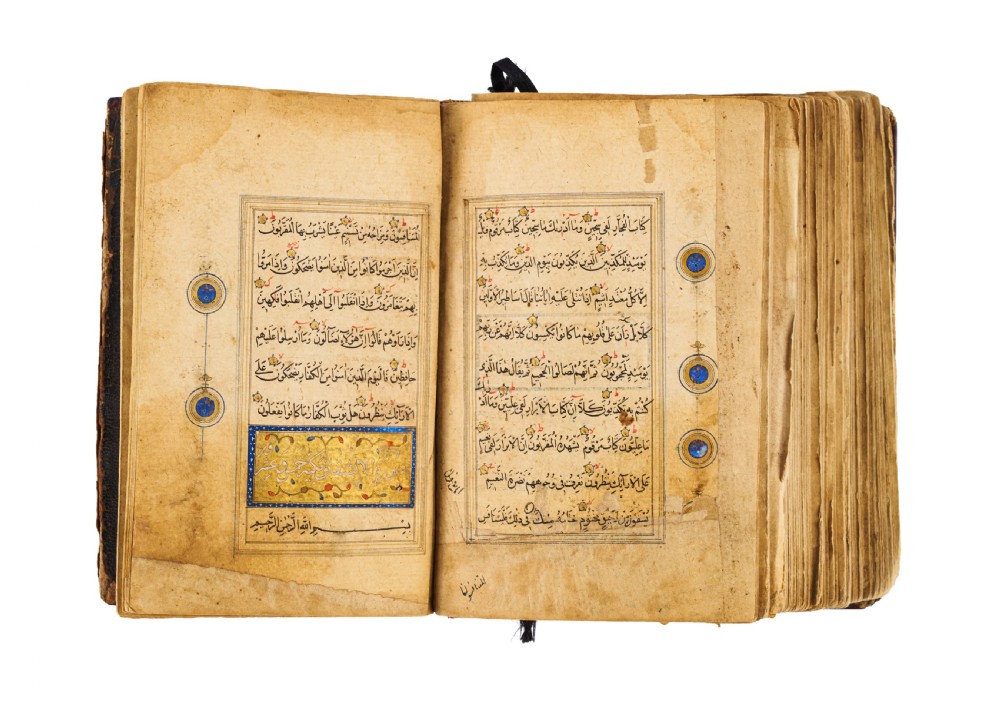 كتاب الفجار لفي سجين وما أدريك ما سجين كتاب مرقوم ويل
يومئذ للمكذبين الذين يكذبون بيوم الدين وما يكذب به
الا كل معتد اثيم اذا تتلى عليه اياتنا قال اساطير الاولين
كلا بل ران على قلوبهم ما كانوا يكسبون كلا انهم عن ربهم
يومئذ لمحجوبون ثم انهم لصالوا الجحيم ثم يقال هذا الذي
كنتم به تكذبون كلا ان كتاب الابرار لفي عليين وما ادريك
ما عليون كتاب مرقوم يشهده المقربون ان الابرار لفي نعيم
على الارآئك ينظرون تعرف في وجوههم نضرة النعيم
يسقون من رحيق مختوم ختامه مسك وفي ذلك فليتنافس
المتنافسون
المتنافسون ومزاجه من تسنيم عينا يشرب بها المقربون
ان الذين اجرموا كانوا من الذين امنوا يضحكون واذا مروا
بهم يتغامزون واذا انقلبوا الى اهلهم انقلبوا فاكهين
واذا راوهم قالوا ان هؤلاء لضالون وما ارسلوا عليهم
حافظين فاليوم الذين امنوا من الكفار يضحكون على
الارآئك ينظرون هل ثوب الكفار ما كانوا يفعلون
بسم الله الرحمن الرحيم